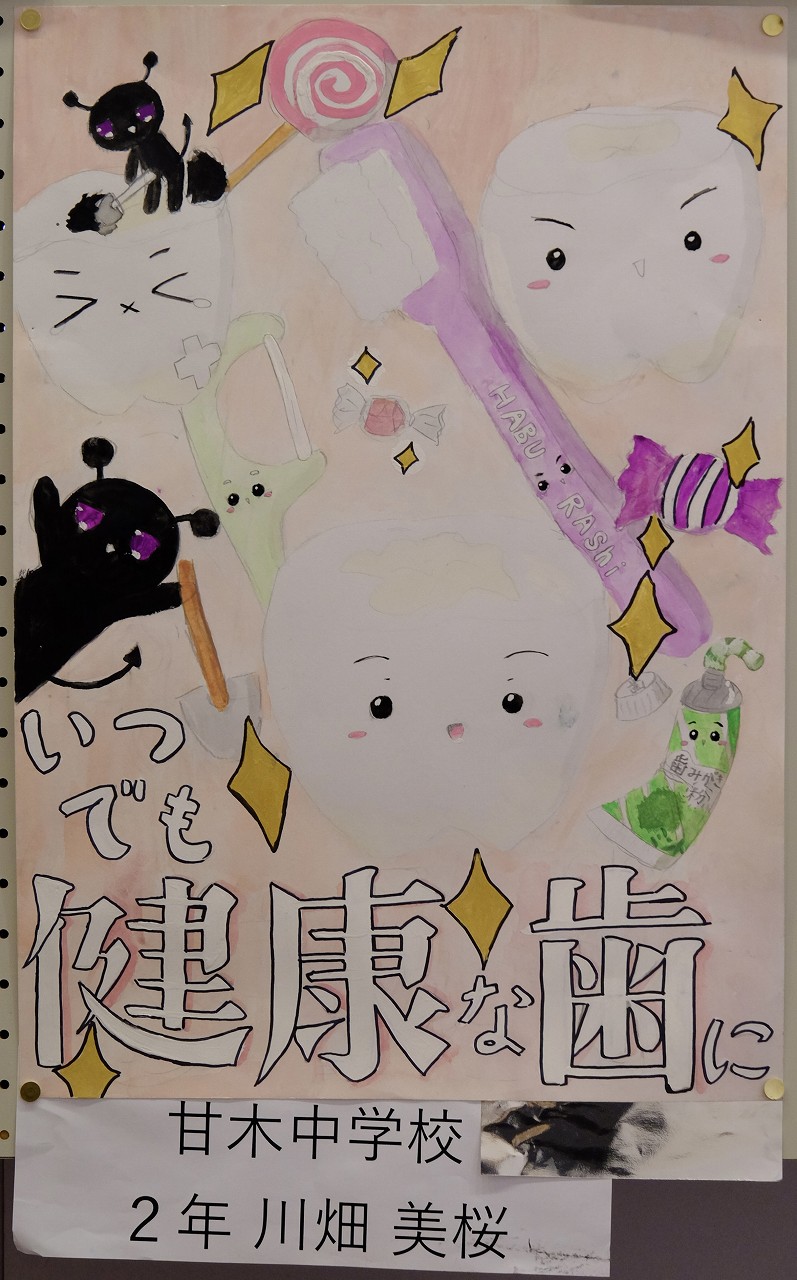 HABU
RAShi
歯みがき
粉
いつ
でも
健康な歯に
甘木中学校
2年 川畑 美桜